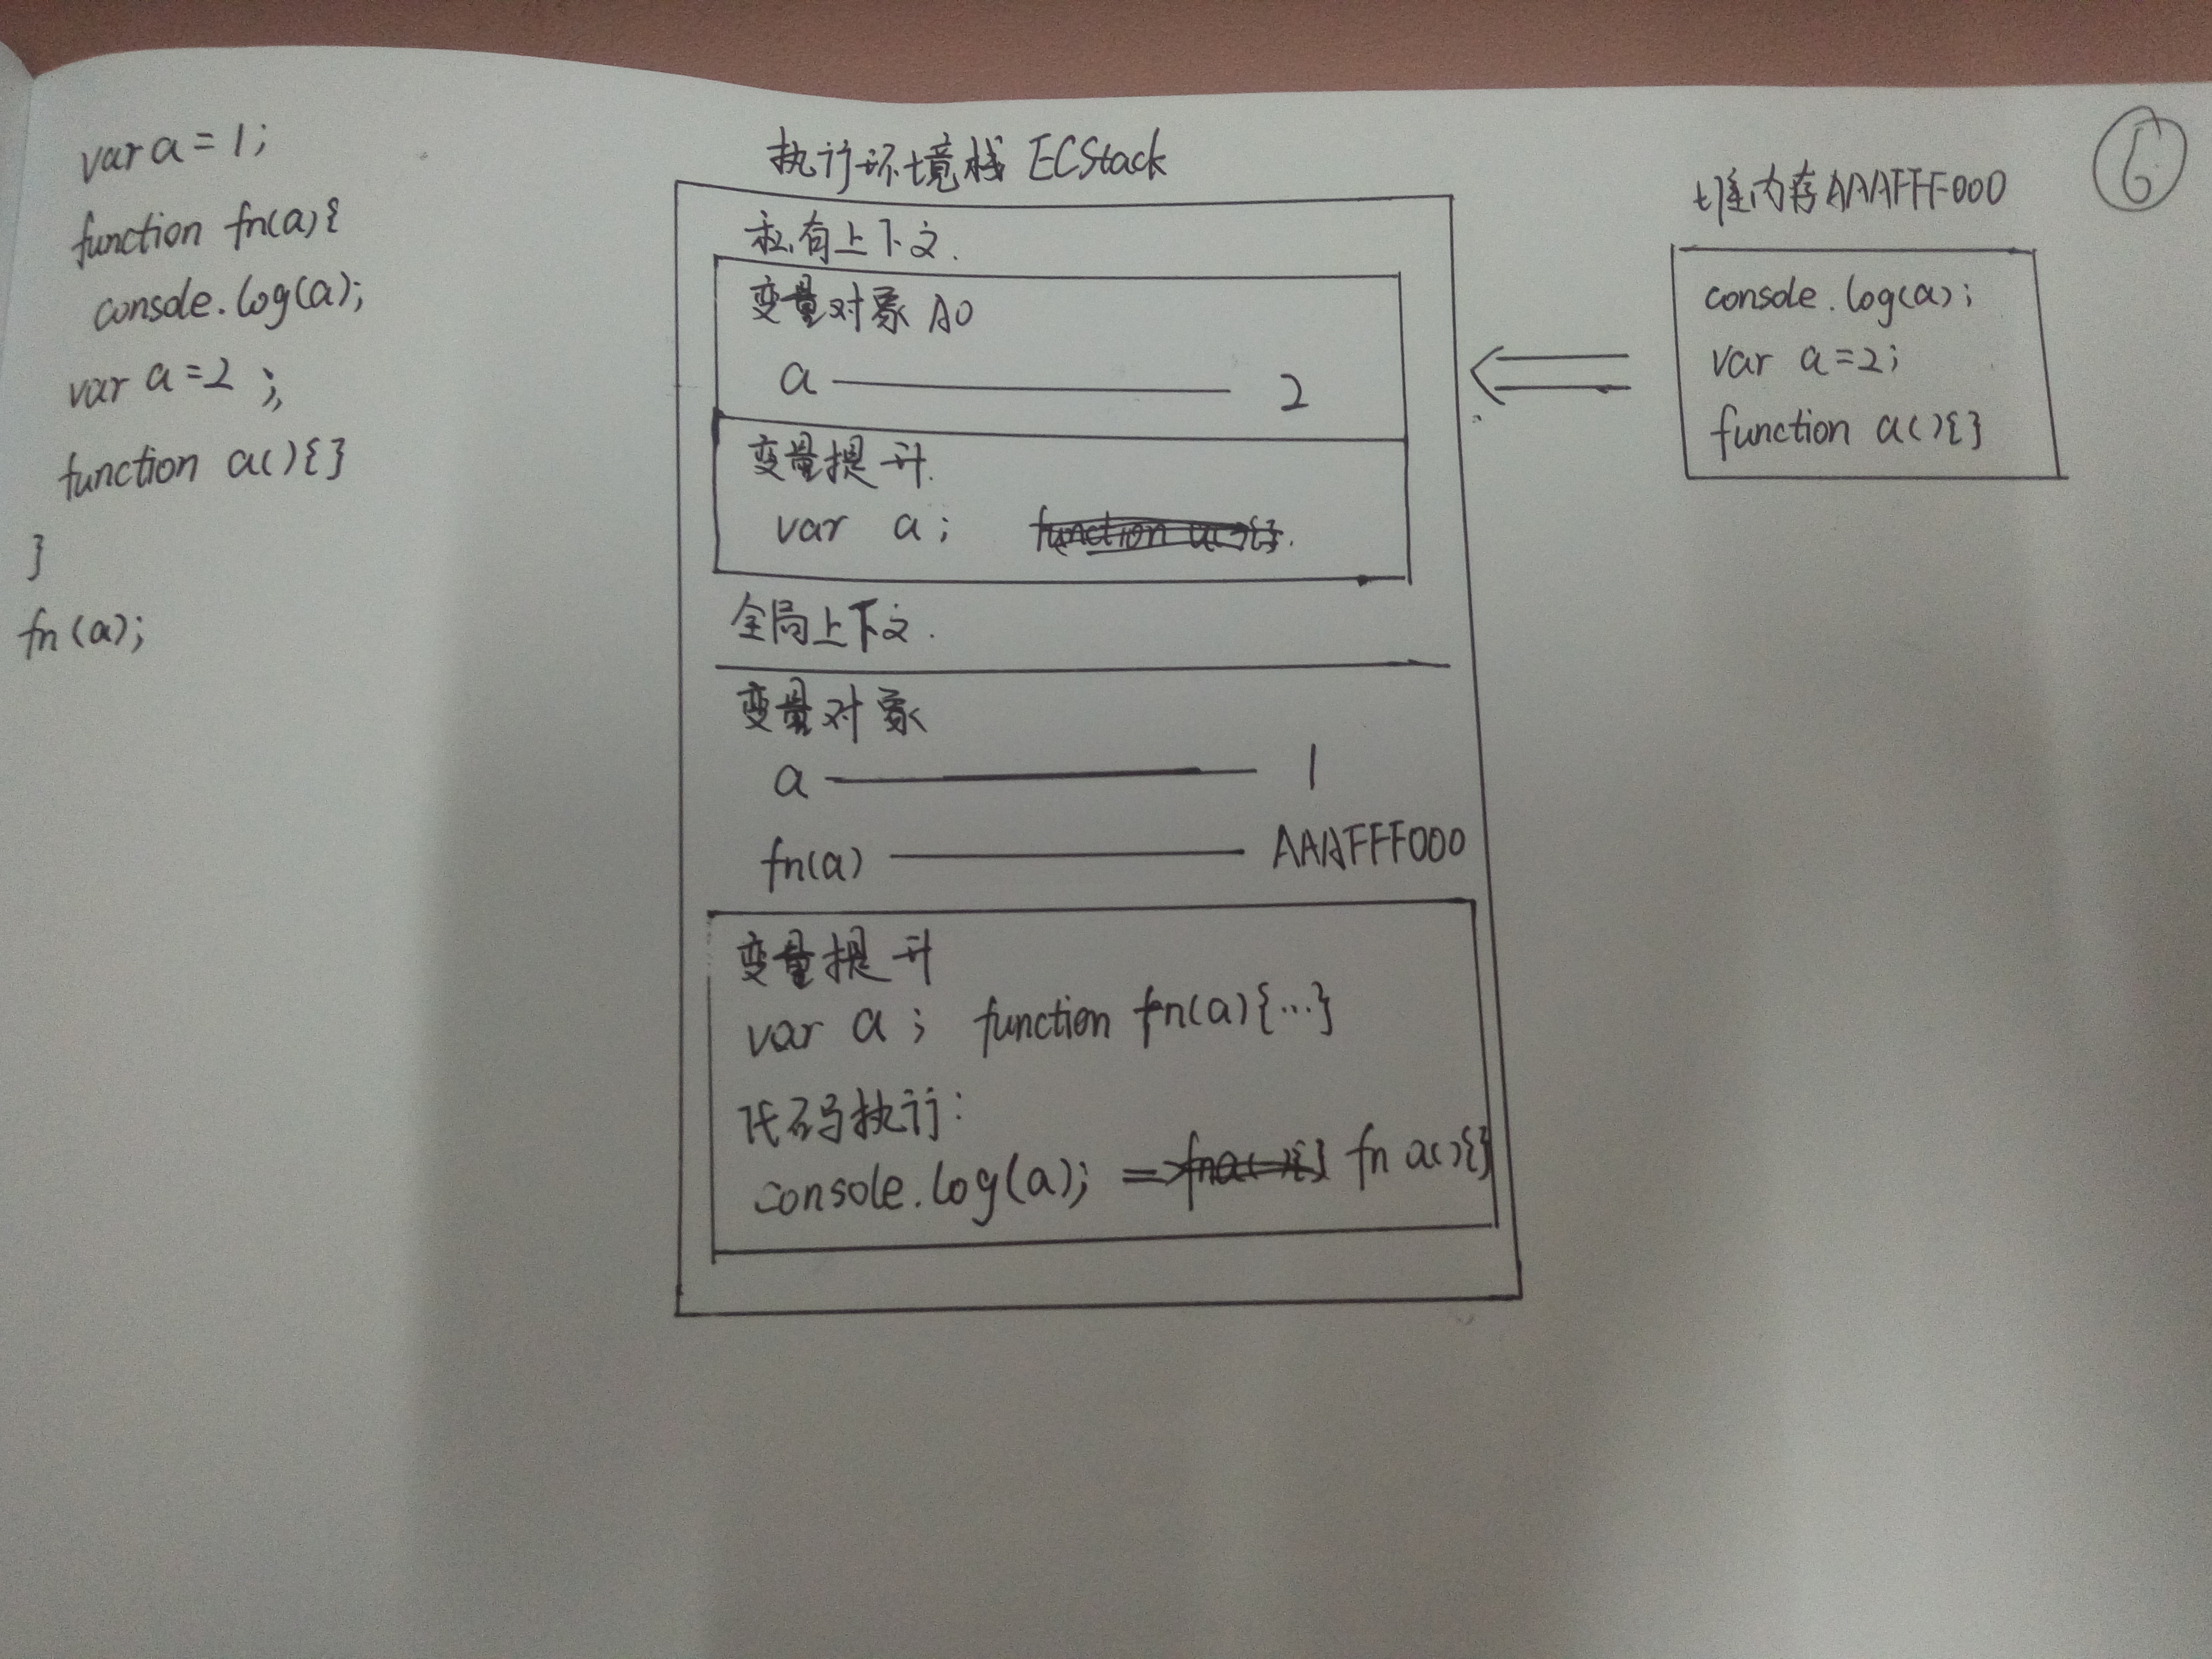 var a = 1;
function fn(a){
console.log(a);
var a = 2 ;
function a(){}
}
fn(a);
执行环境栈 ECStack
私有上下文.
变量对象 AO
a 2
变量提升.
var a; function a(){}.
全局上下文.
变量对象
a 1
fn(a) AAAFFF000
变量提升
var a; function fn(a){...}
代码执行:
console.log(a); => fn a(){} fn a(){}
堆内存AAAFFF000
console.log(a);
var a=2;
function a(){}
6